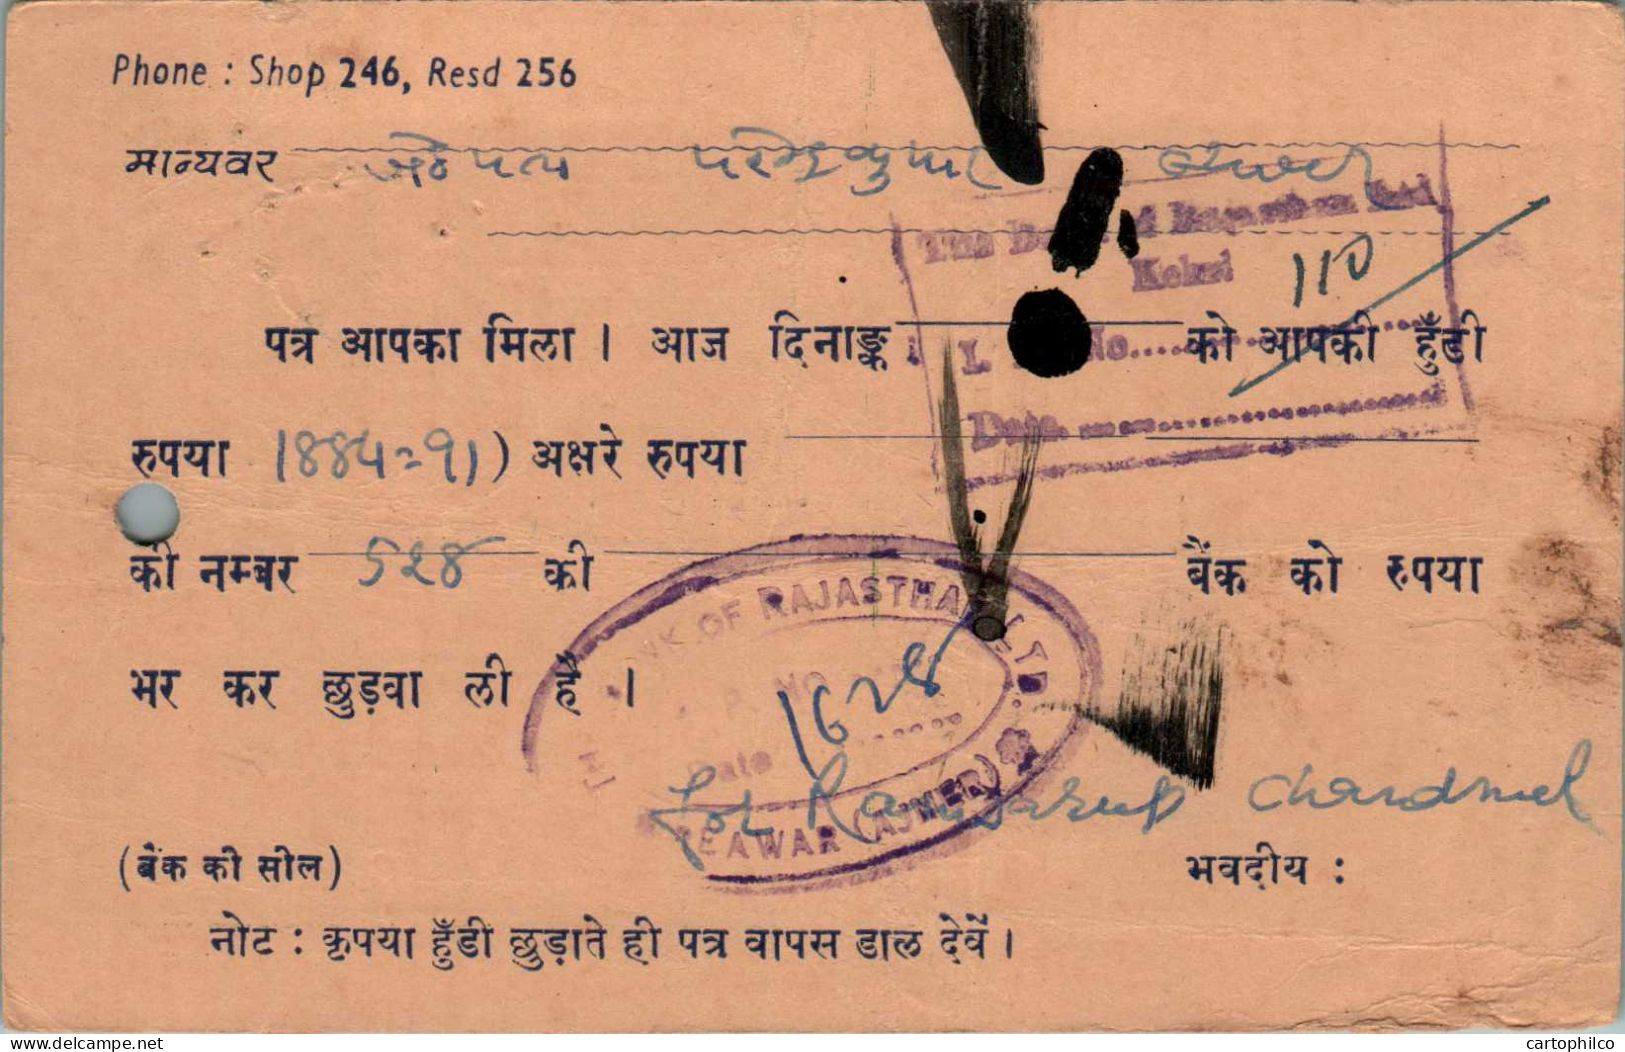 Phone : Shop 246, Resd 256
मान्यवर
The Bank of Rajasthan Ltd.
Kekri
110
पत्र आपका मिला । आज दिनाङ्क को आपकी हुँडी
No.
Date
रुपया 1884=91) अक्षरे रुपया
की नम्बर 528 की बैंक को रुपया
BANK OF RAJASTHAN LTD.
भर कर छुड़वा ली है ।
No
1628
Date
BEAWAR (AJMER)
for Ramsarup Chandmal
(बैंक की सील) भवदीय :
नोट : कृपया हुँडी छुड़ाते ही पत्र वापस डाल देवें ।
cartophilco